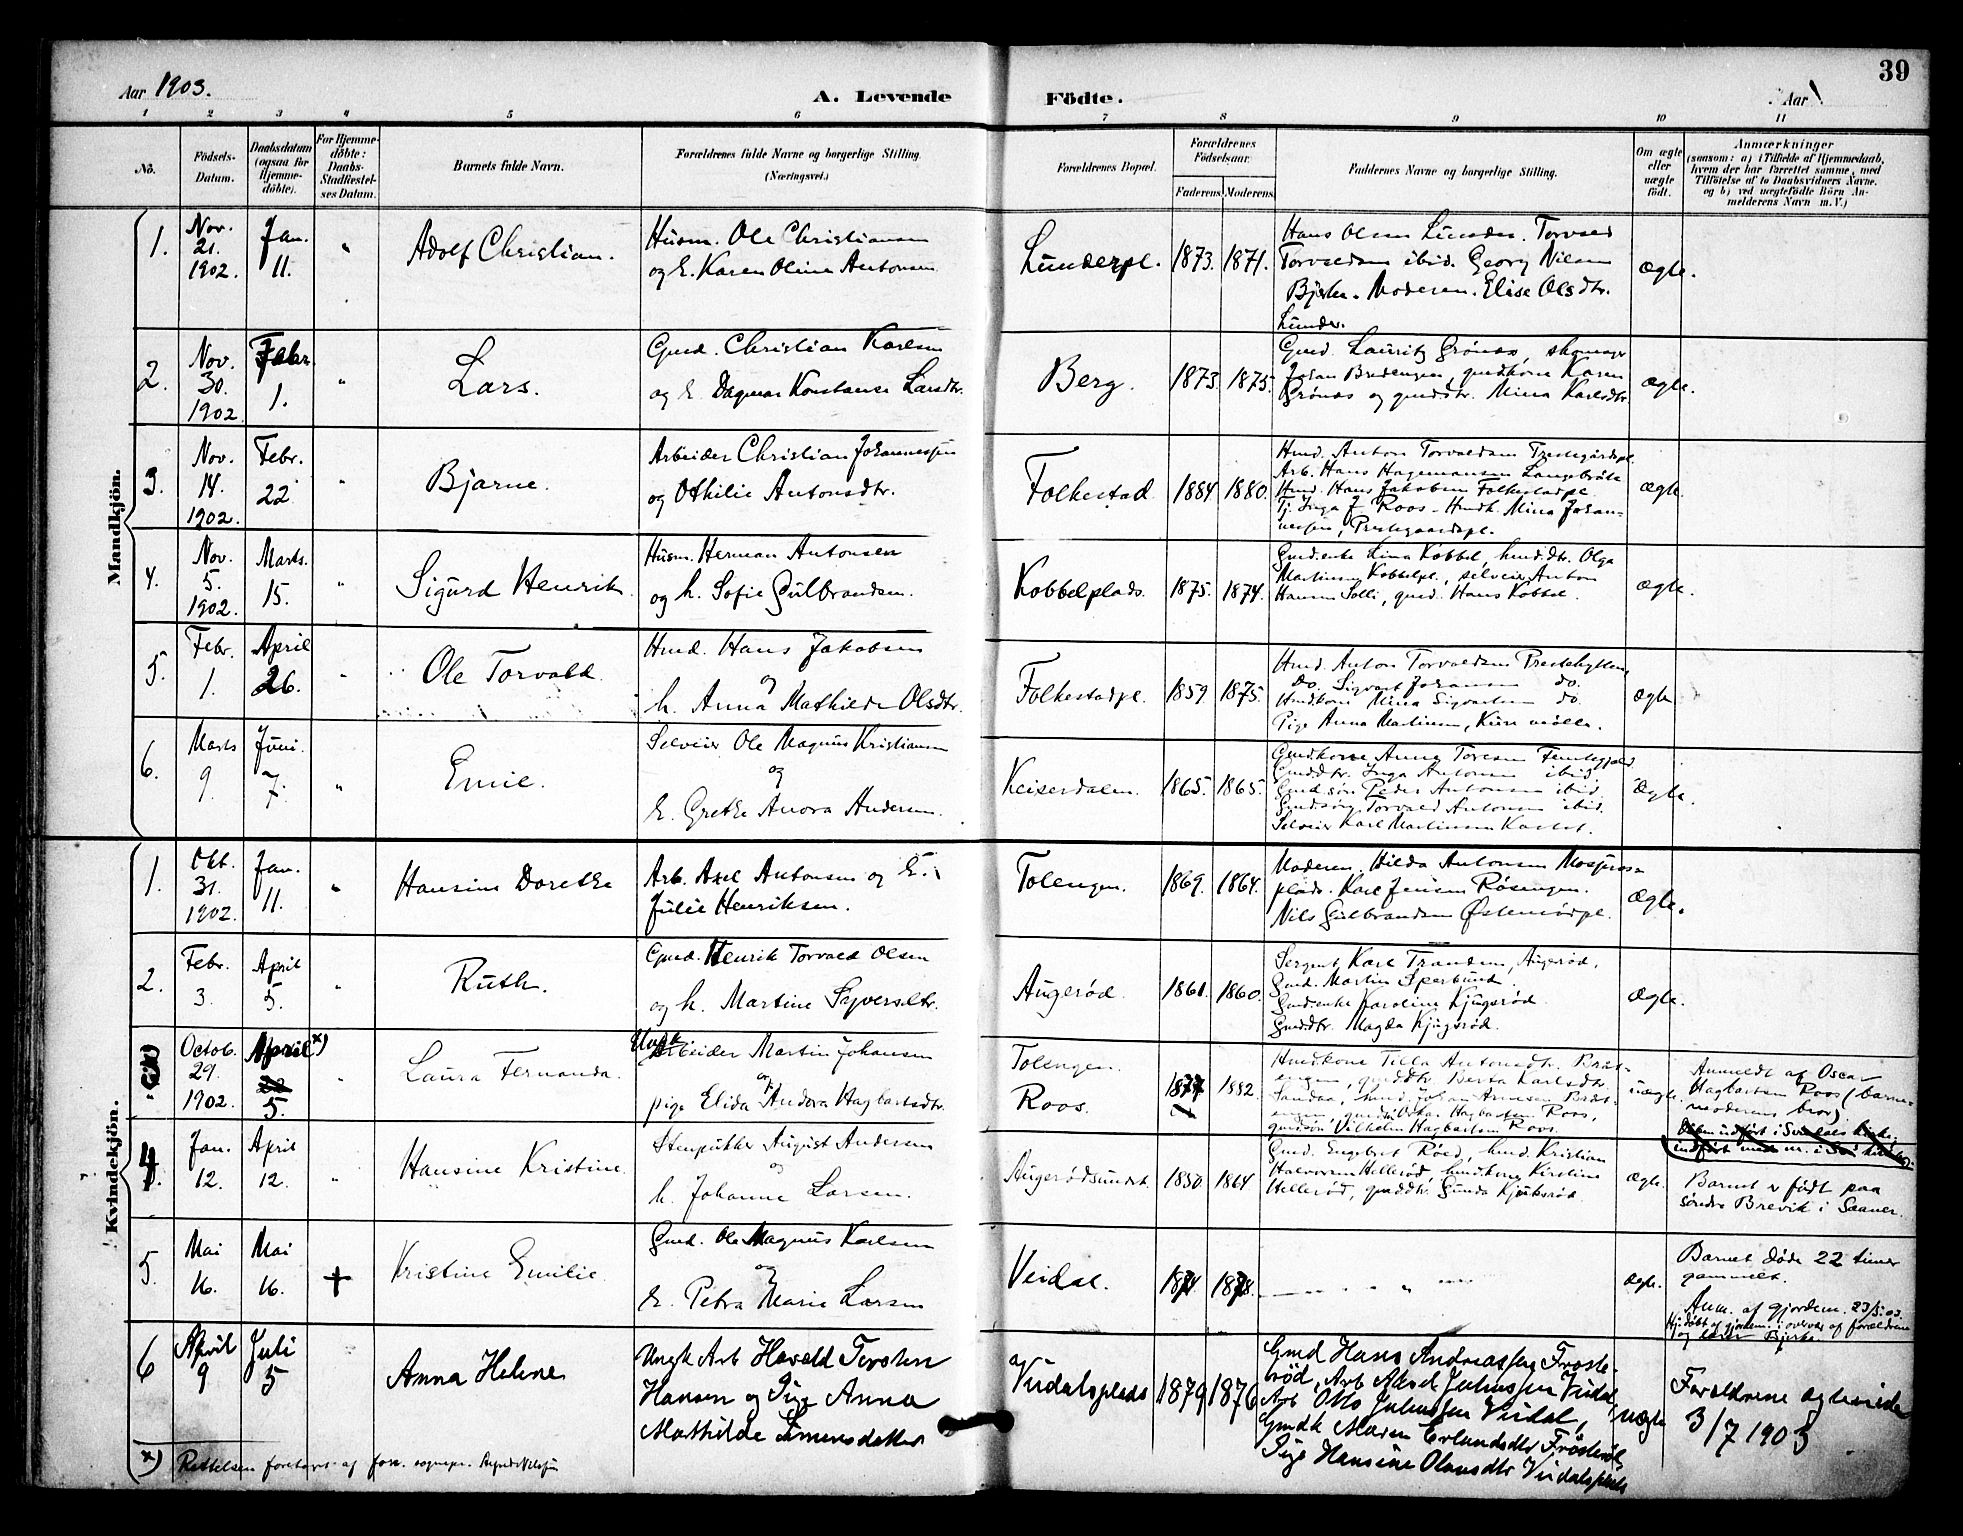 39
Aar 1903.
A. Levende Födte.
Aar
1 2 3 4 5 6 7 8 9 10 11
No.
Födsels-Datum.
Daabsdatum (ogsaa for Hjemme-döbte).
For Hjemme-döbte: Daabs-Stadfæstelses Datum.
Barnets fulde Navn.
Forældrenes fulde Navne og borgerlige Stilling.
(Næringsvei.)
Forældrenes Bopæl.
Forældrenes Födselsaar.
Faderens Moderens
Faddernes Navne og borgerlige Stilling.
Om ægte eller uægte födt.
Anmærkninger
(saasom: a) i Tilfælde af Hjemmedaab, hvem der har forrettet samme, med Tilföielse af to Daabsvidners Navne, og b) ved uægtefödte Börn Anmelderens Navn m. V.)
Mandkjön.
1. Nov. 21. 1902. Jan. 11. " Adolf Christian.
Husm. Ole Christiansen
og E. Karen Oline Antonsen
Lunderpl. 1873. 1871.
Hans Olsen Lunder. Torvald
Torvaldsen ibid. Georg Nilsen
Bjerke. Moderen. Elise Olsdtr.
Lunder.
ægte.
2. Nov. 30. 1902 Febr. 1. " Lars.
Gmd. Christian Karlsen
og E. Dagmar Konstanse Larsdtr.
Berg. 1873 1875.
Gmd. Lauritz Grönås, skomager
Johan Bredengen, gmdkone Karen
Grönås og gmdsdtr. Mina Karlsdtr.
ægte.
3. Nov. 14. 1902. Febr. 22 " Bjarne.
Arbeider Christian Johannessen
og Othilie Antonsdtr.
Folkestad 1884 1880.
Hmd. Anton Torvaldsen Prestegårdspl.
Arb. Hans Hagemansen Langebråte
Hmd. Hans Jakobsen Folkestadpl.
Tj. Inga J Roos - Hmdk. Mina Johan-
nessen, Prestegaardspl.
ægte.
4. Nov. 5. 1902. Marts. 15. " Sigurd Henrik
Husm. Herman Antonsen
og h. Sofie Gulbrandsen.
Kobbelplads. 1875. 1874.
Gmd.enke Lina Kobbel, hmd.dtr. Olga
Martinsen Kobbelpl., selveier Anton
Hansen Solli, gmd. Hans Kobbel.
ægte.
5. Febr. 1. April 26. " Ole Torvald
Hmd. Hans Jakobsen
og
h. Anna Mathilde Olsdtr.
Folkestadpl. 1859 1875.
Hmd. Anton Torvaldsen Prestehytten,
do. Sigvart Johansen do.
Hmdkone Mina Sigvartsen do.
Pige Anna Martinsen,
ægte
6. Marts 9. Juni. 7. " Emil.
Selveier Ole Magnus Kristiansen
og
E. Grethe Anora Andersen.
Keiserdalen. 1865. 1865.
Gmdkone Anna Toresen
Gmddtr. Inga Antonsen ibid.
Gmd.søn Peder Antonsen ibid.
Gmdsøn Torvald Antonsen ibid.
Selveier Karl Martinsen
Ægte.
Kvindekjön.
1. Okt. 31. 1902. Jan. 11. " Hansine Dorethe
Arb. Axel Antonsen og E.
Julie Henriksen.
Tolengen. 1869. 1864.
Moderen. Hilda Antonsen
plads. Karl Jensen Røsengen.
Nils Gulbrandsen
Ægte.
2. Febr. 3. April 5. " Ruth.
Gmd. Henrik Torvald Olsen
og h. Martine Syversdtr.
Augerød. 1861. 1860.
Sergent Karl Trandem, Augerød.
Gmd. Martin Sperbund
Gmd.enke Karoline Kjugsrød.
Gmd.dtr. Magda Kjugsrød.
Ægte.
3 Octob. 29. 1902 April x) 5. " Laura Fernanda.
Ungk
Arbeider Martin Johansen
og
pige Elida Andora Hagbartsdtr.
Tolengen.
Roos. 1877 1882.
Hmdkone Tilla Antonsdtr.
gmddtr. Berta Karlsdtr.
hmd. Johan Arnesen
gmdsøn Oskar Hagbartsen Roos,
gmdsøn Vilhelm Hagbartsen Roos.
uægte
Anmeldt af Oscar
Hagbartsen Roos (barne-
moderens bror).
4. Jan. 12. April 12. " Hansine Kristine
Stenhukker August Andersen
og
h. Johanne Larsen.
Augerødsundet 1850. 1864
Gmd. Engebret Röed, hmd. Kristian
Halvorsen Hellerød, hmdkone Kirstine
Hellerød, gmddtr. Gunda Kjuksrød.
ægte.
Barnet er født paa
søndre Brevik i Saaner.
5. Mai 16. Mai 16. + Kristine Emilie.
Gmd. Ole Magnus Karlsen
og
E. Petra Marie Larsen
Veidal. 1874 1878.
ægte.
Barnet døde 22 timer
gammelt.
Anm. af gjordem. 23/5.03.
Hj.døbt af gjordem. i overvær af forældrene
og lærer Bjerke
6 April 9 Juli 5 Anna Helene
Ungk Arb Harald Torsten
Hansen og Pige Anna
Mathilde Simensdatter
Veidalsplads 1879 1876
Gmd Hans Andreassen Froste-
röd, Arb Aksel Juliussen Veidal,
Arb Otto Juliussen Veidal,
Gmdk Maren Erlandsdtr Fröströd
Pige Hansine Olausdtr Veidalsplads
uægte
Forældrene ægteviede
3/7 1903
x) Rettelsen foretat af forr. sognepr.